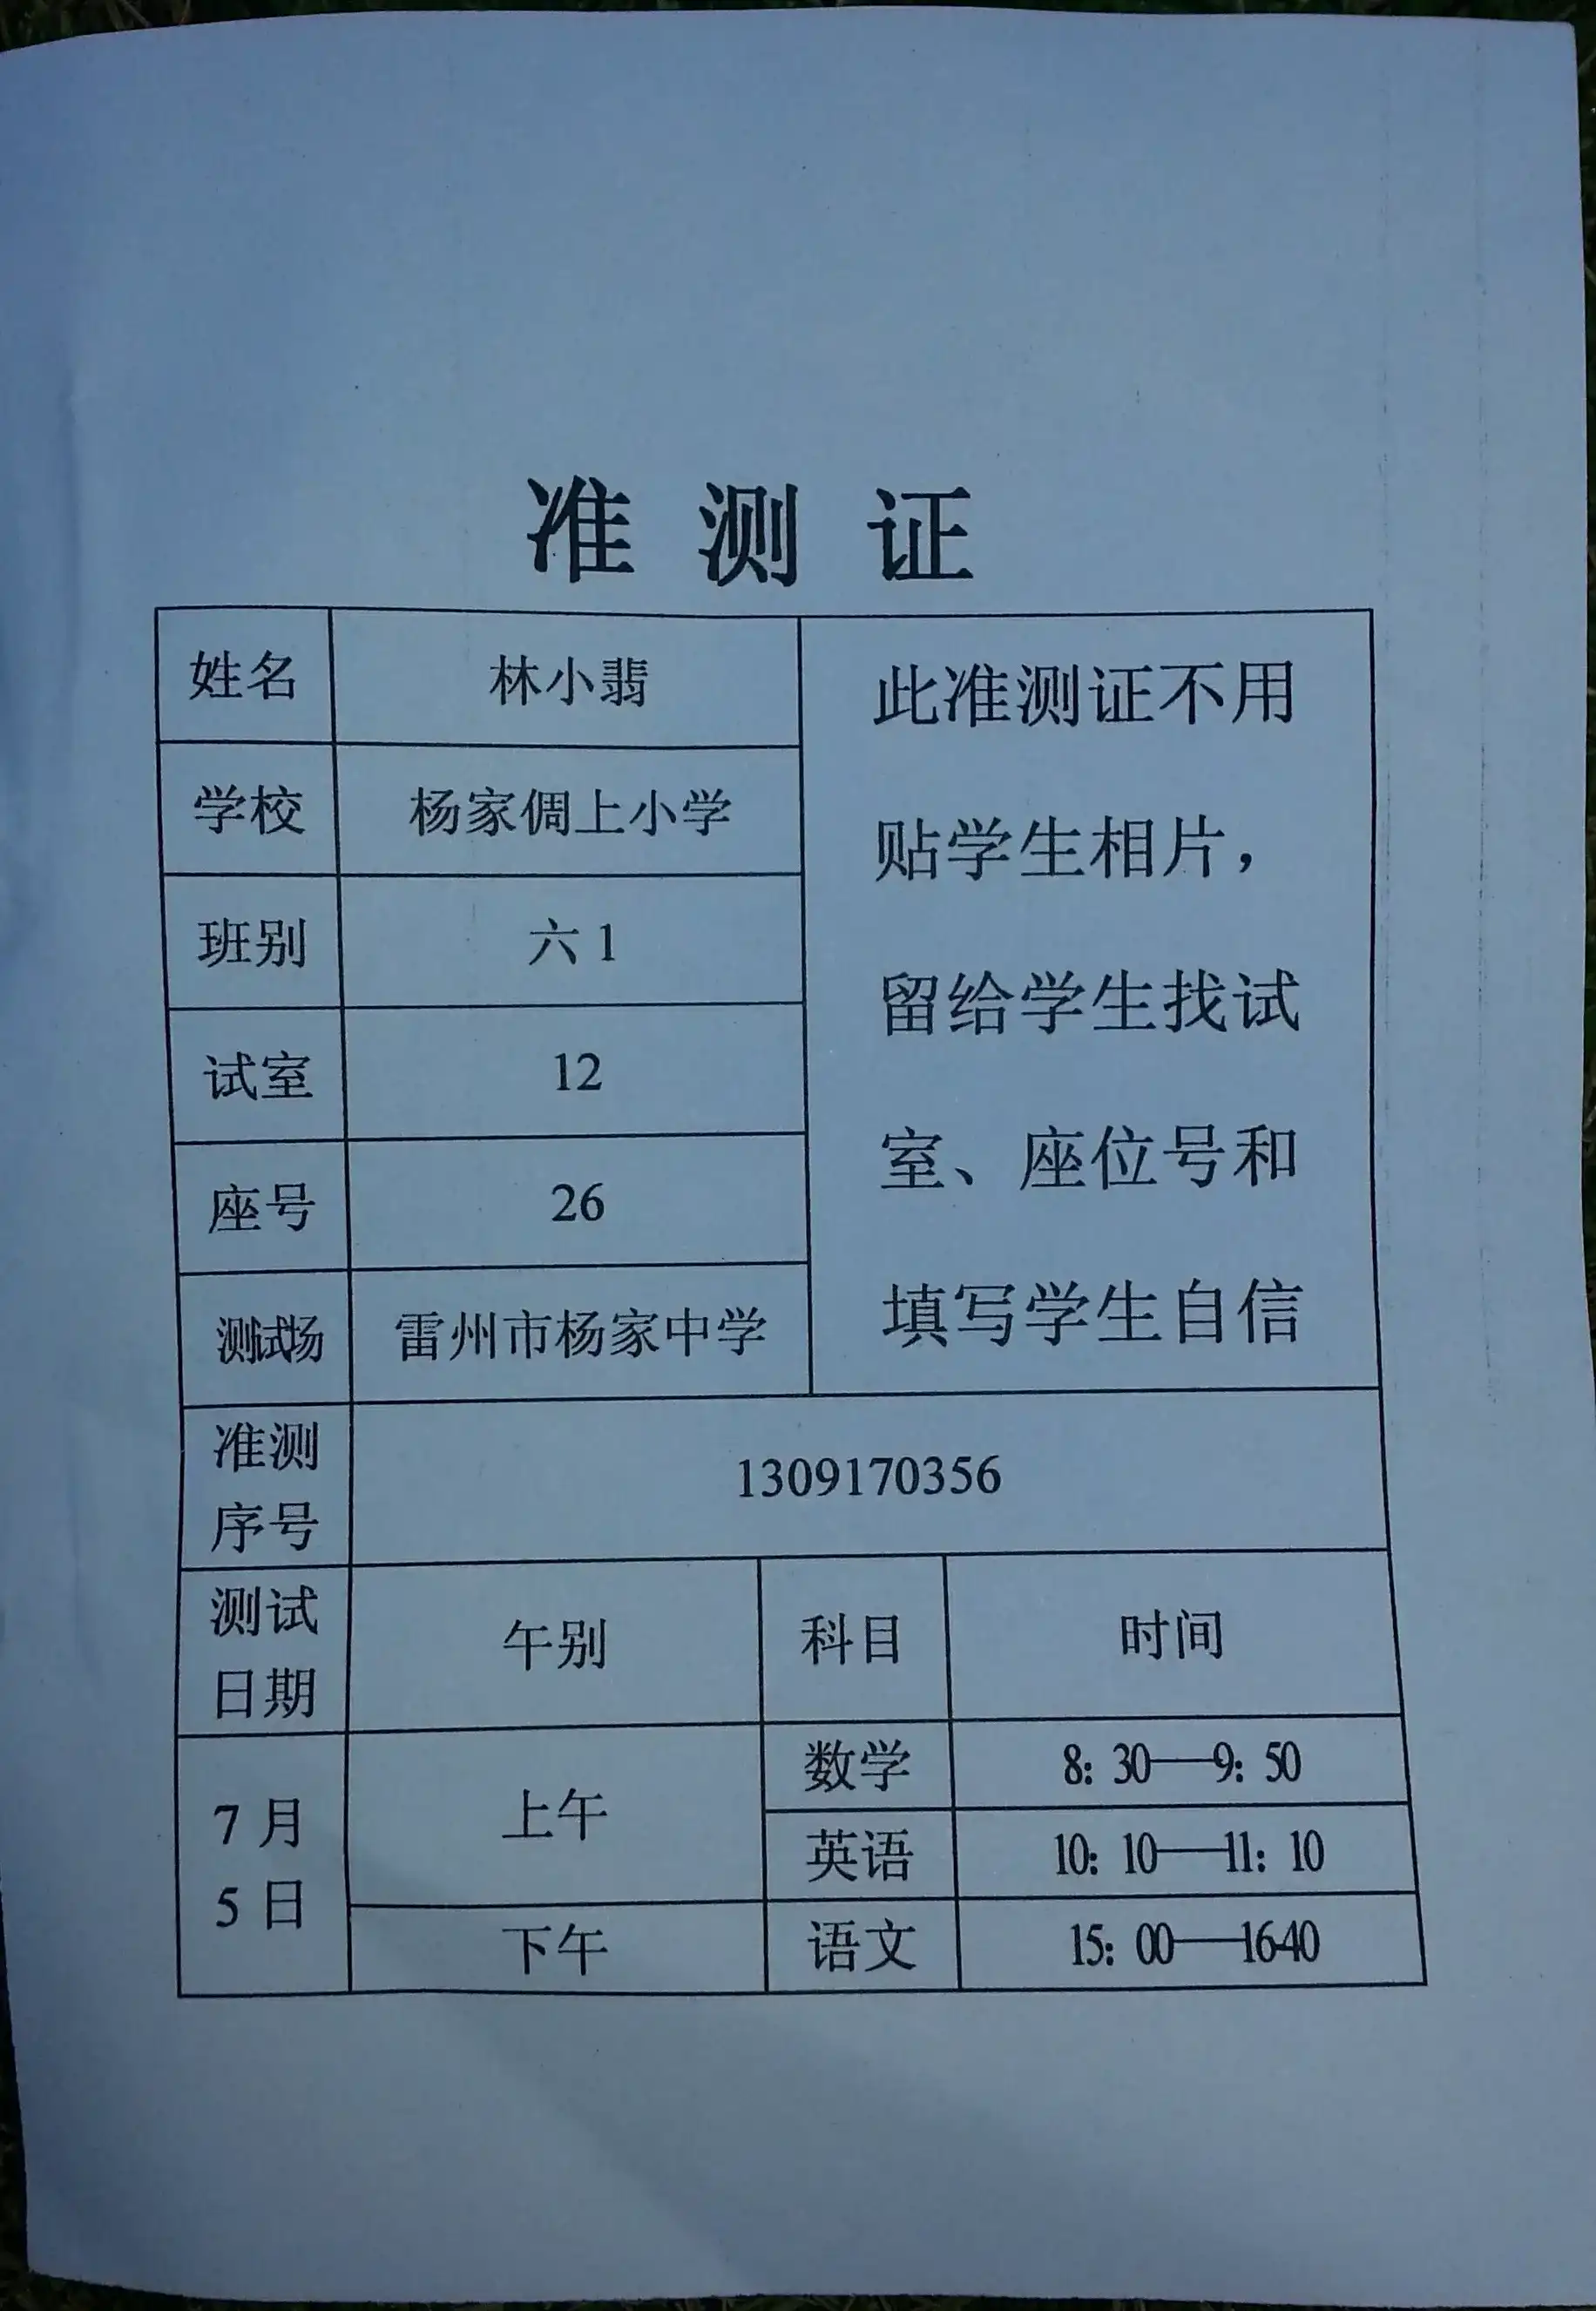 准测证
姓名 林小翡
学校 杨家倜上小学
班别 六1
试室 12
座号 26
测试场 雷州市杨家中学
此准测证不用
贴学生相片，
留给学生找试
室、座位号和
填写学生自信
准测
序号
1309170356
测试
日期
午别 科目 时间
7月
5日
上午
数学 8：30——9：50
英语 10：10——11：10
下午 语文 15：00——1640